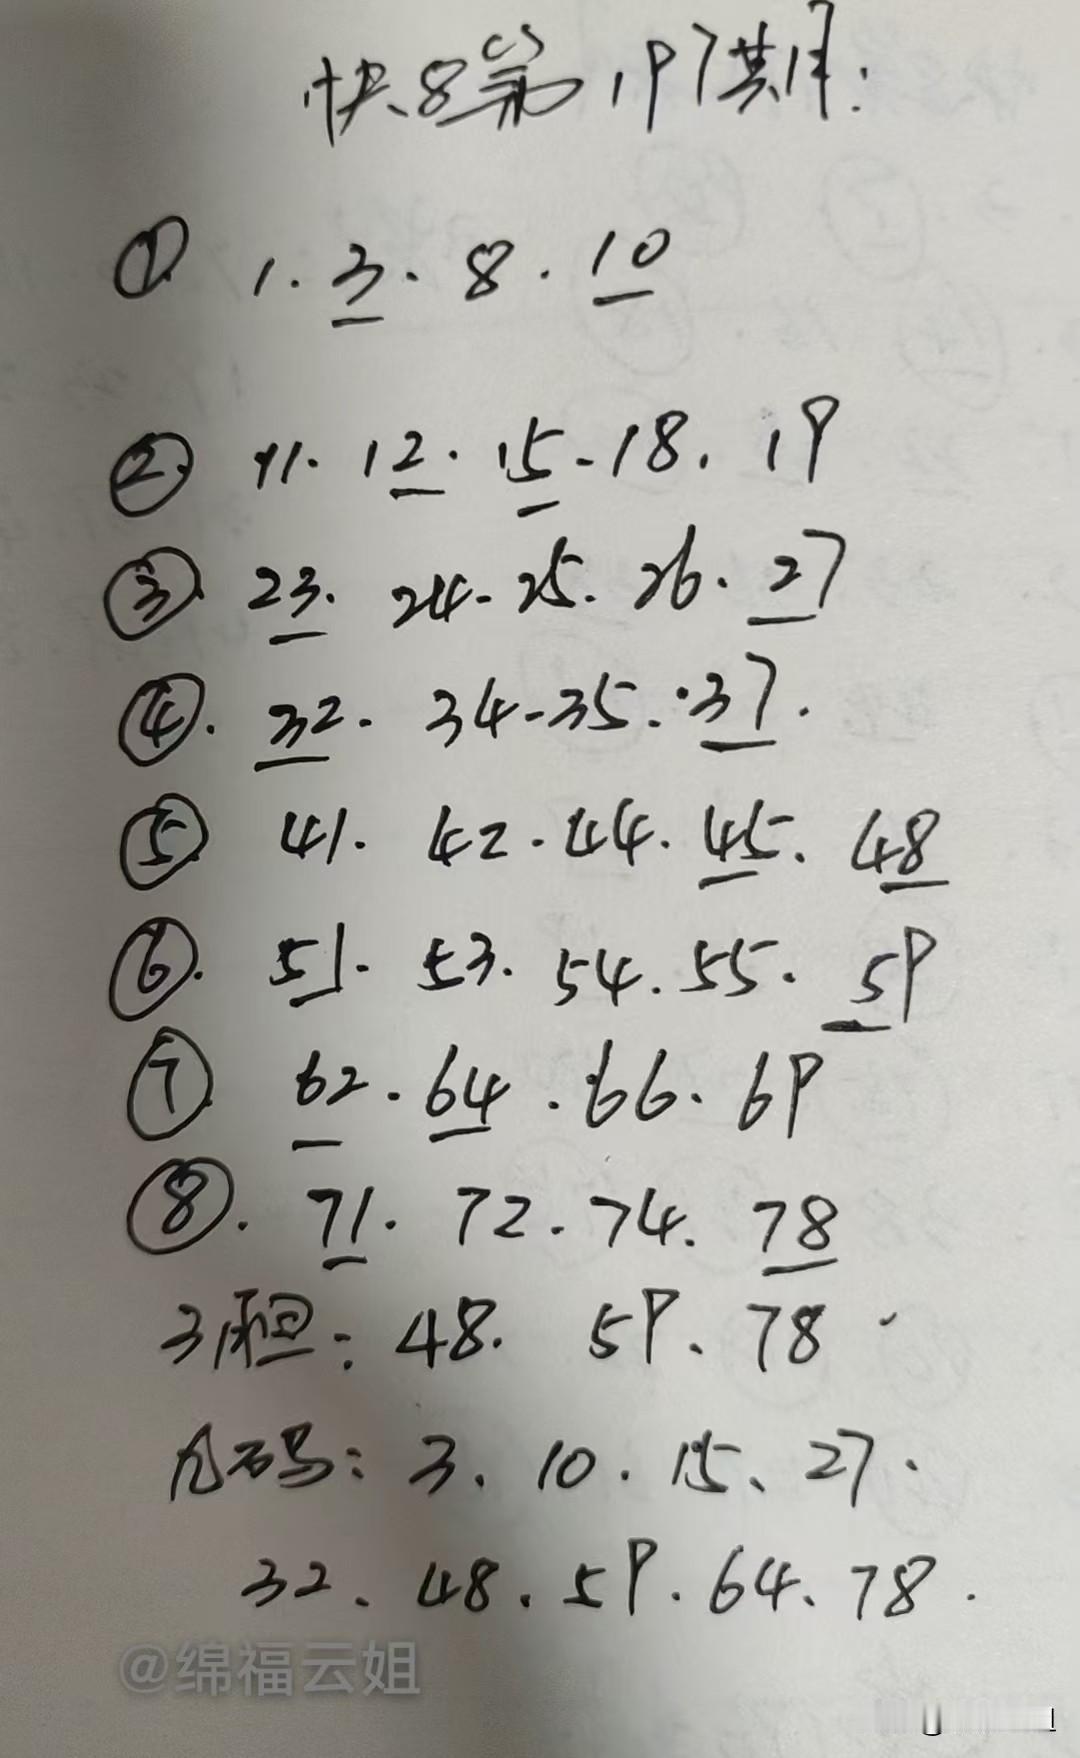 快8第197期:
① 1. 3. 8. 10
② 11. 12. 15-18. 19
③ 23. 24-25. 26. 27
④. 32. 34-35. 37.
⑤ 41. 42. 44. 45. 48
⑥. 51. 53. 54. 55. 59
⑦ 62. 64. 66. 69
⑧. 71. 72. 74. 78
3胆: 48. 59、78
九码: 3、10. 15、27.
32、48. 59. 64、78.
@绵福云姐